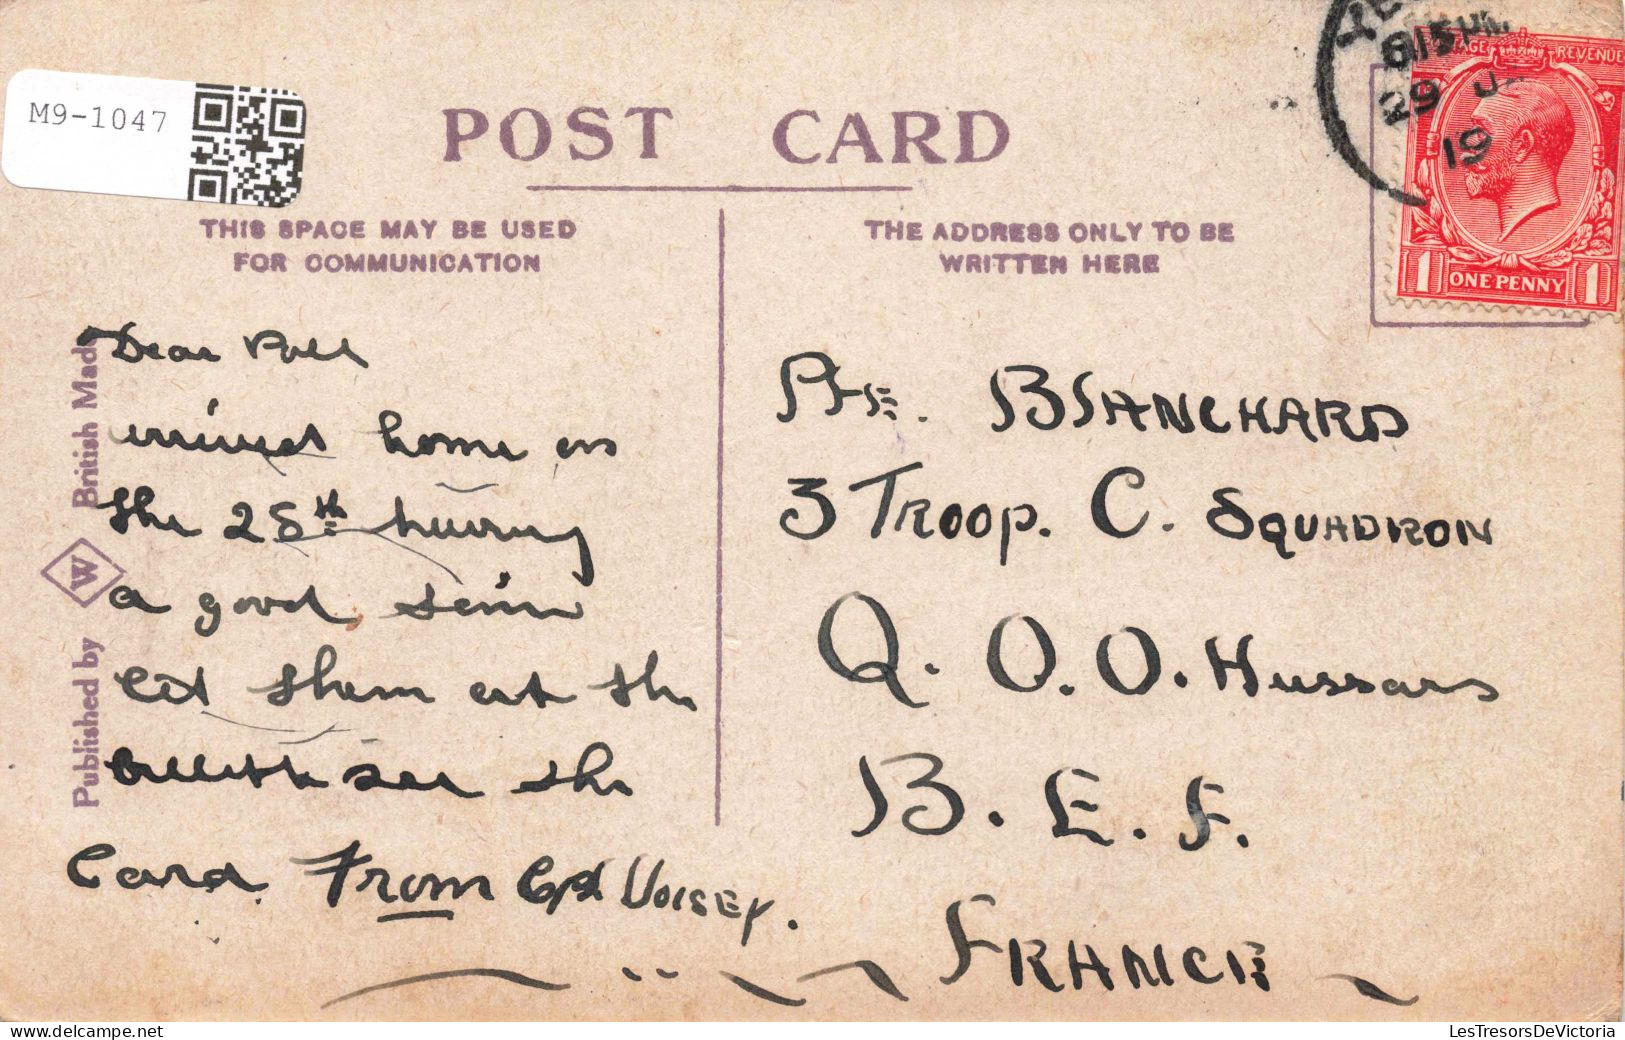 M9-1047
POST CARD
6.15 PM
29 J
19
POSTAGE REVENUE
1 ONE PENNY 1
THIS SPACE MAY BE USED
FOR COMMUNICATION
THE ADDRESS ONLY TO BE
WRITTEN HERE
Published by W British Made
Dear
home on
the 28th having
a good
let them at the
see the
Card. From Cpl Voisey.
Pte. BLANCHARD
3 TROOP. C. SQUADRON
Q. O. O. Hussars
B. E. F.
FRANCE
LesTresorsDeVictoria
www.delcampe.net